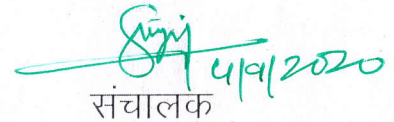 4/9/2020
संचालक